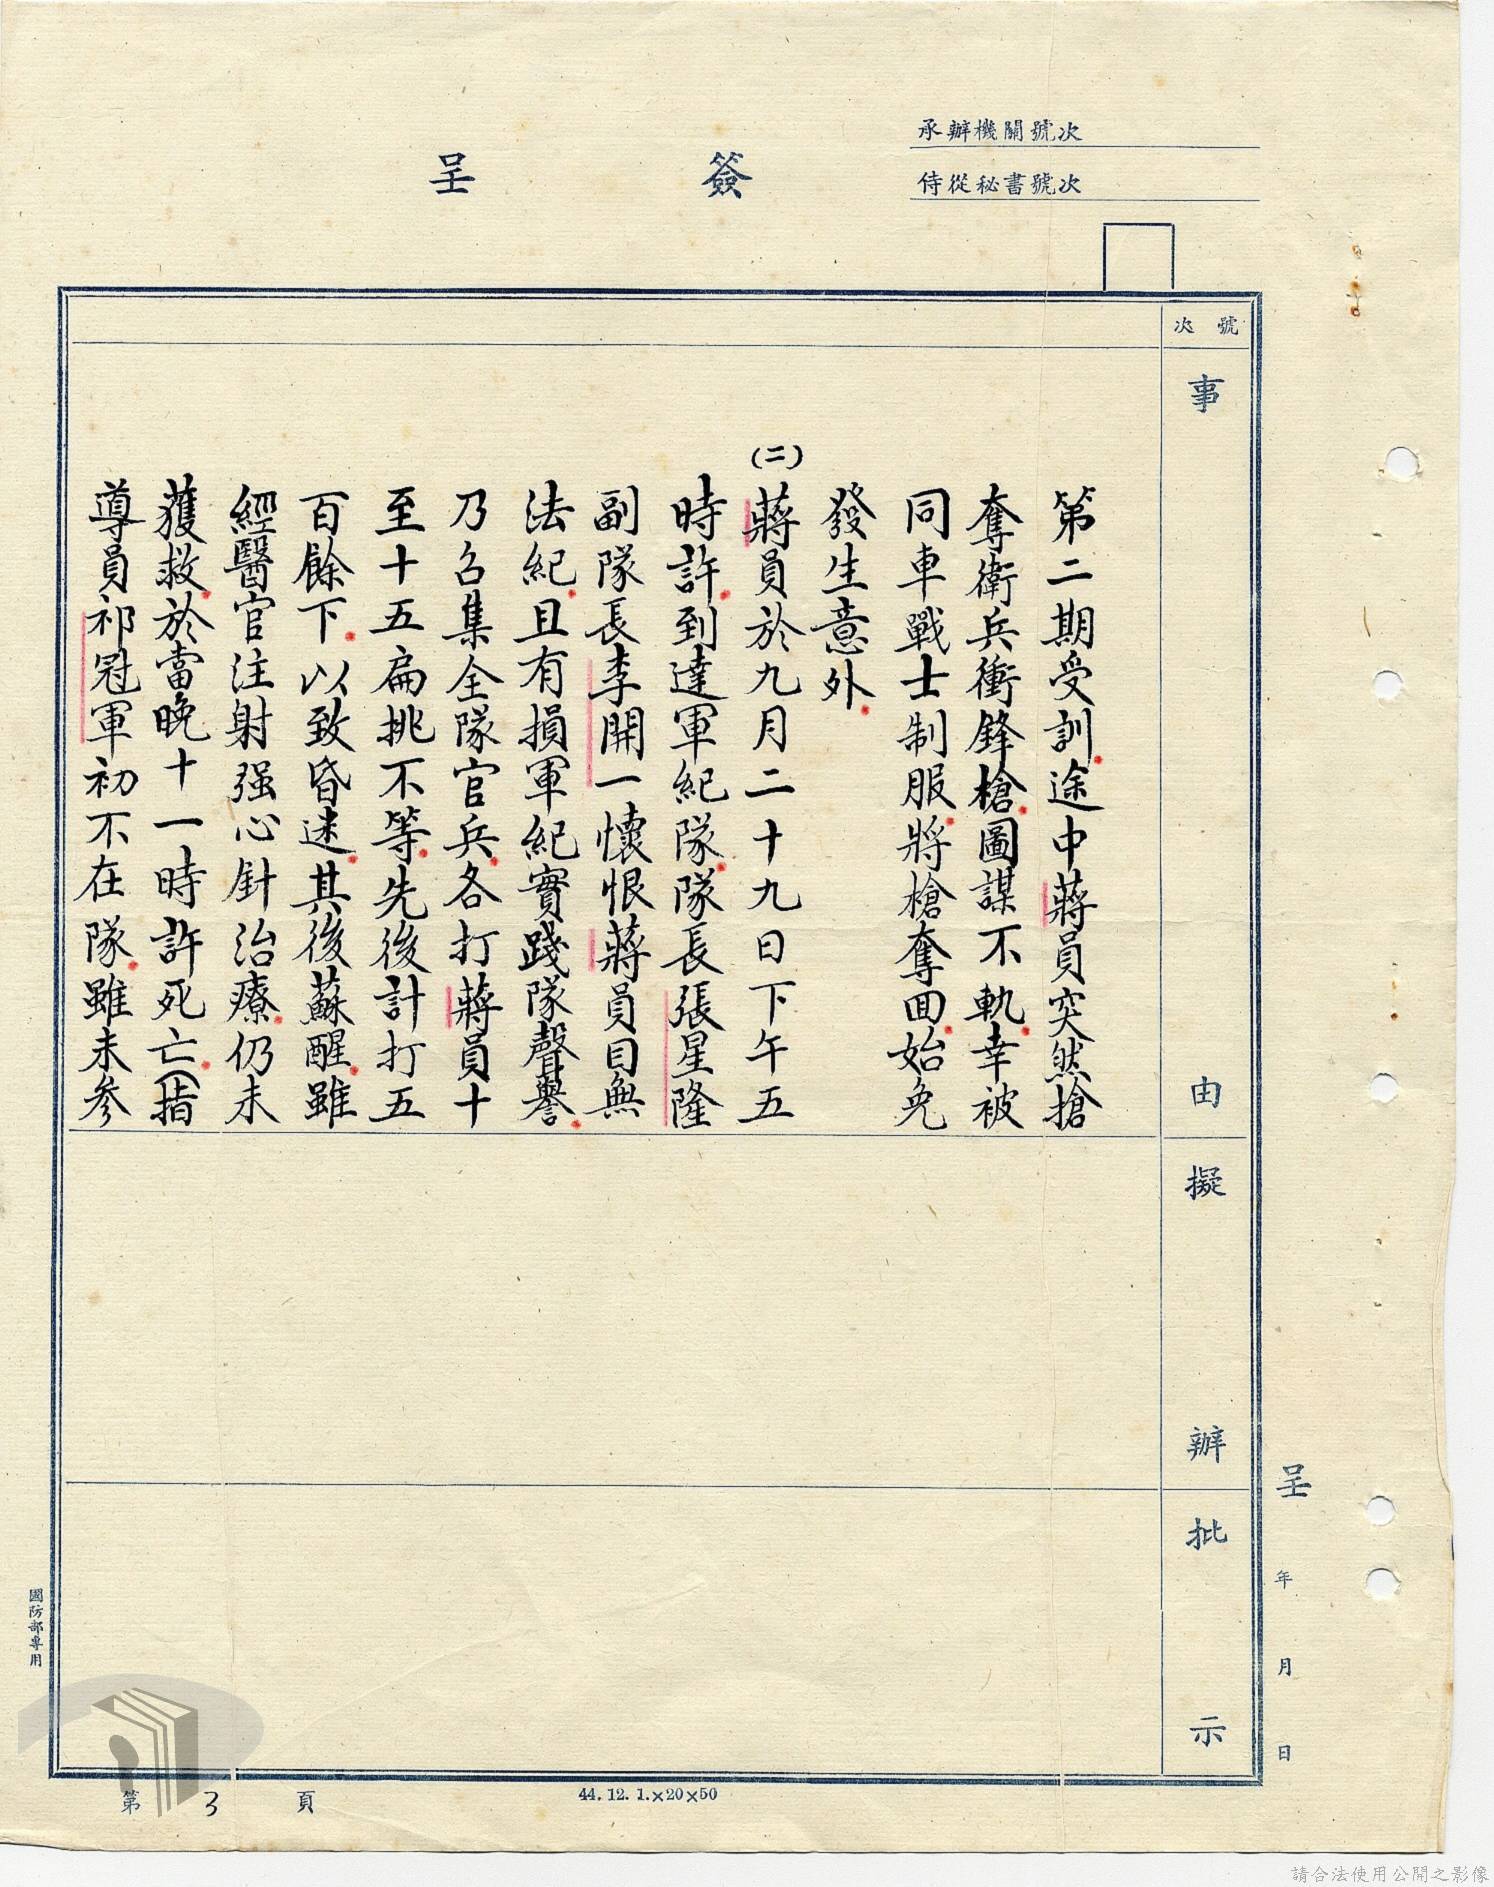 承辦機關號次
侍從秘書號次
簽呈
號次
事由
擬辦
批示
第二期受訓途中蔣員突然搶
奪衛兵衝鋒槍圖謀不軌幸被
同車戰士制服將槍奪回始免
發生意外
(二)蔣員於九月二十九日下午五
時許到達軍紀隊隊長張星隆
副隊長李開一懷恨蔣員目無
法紀且有損軍紀實踐隊聲譽
乃召集全隊官兵各打蔣員十
至十五扁挑不等先後計打五
百餘下以致昏迷其後蘇醒雖
經醫官注射强心針治療仍未
獲救於當晚十一時許死亡(指
導員祁冠軍初不在隊雖未參
呈 年 月 日
國防部專用
第3頁
44.12.1.×20×50
請合法使用公開之影像